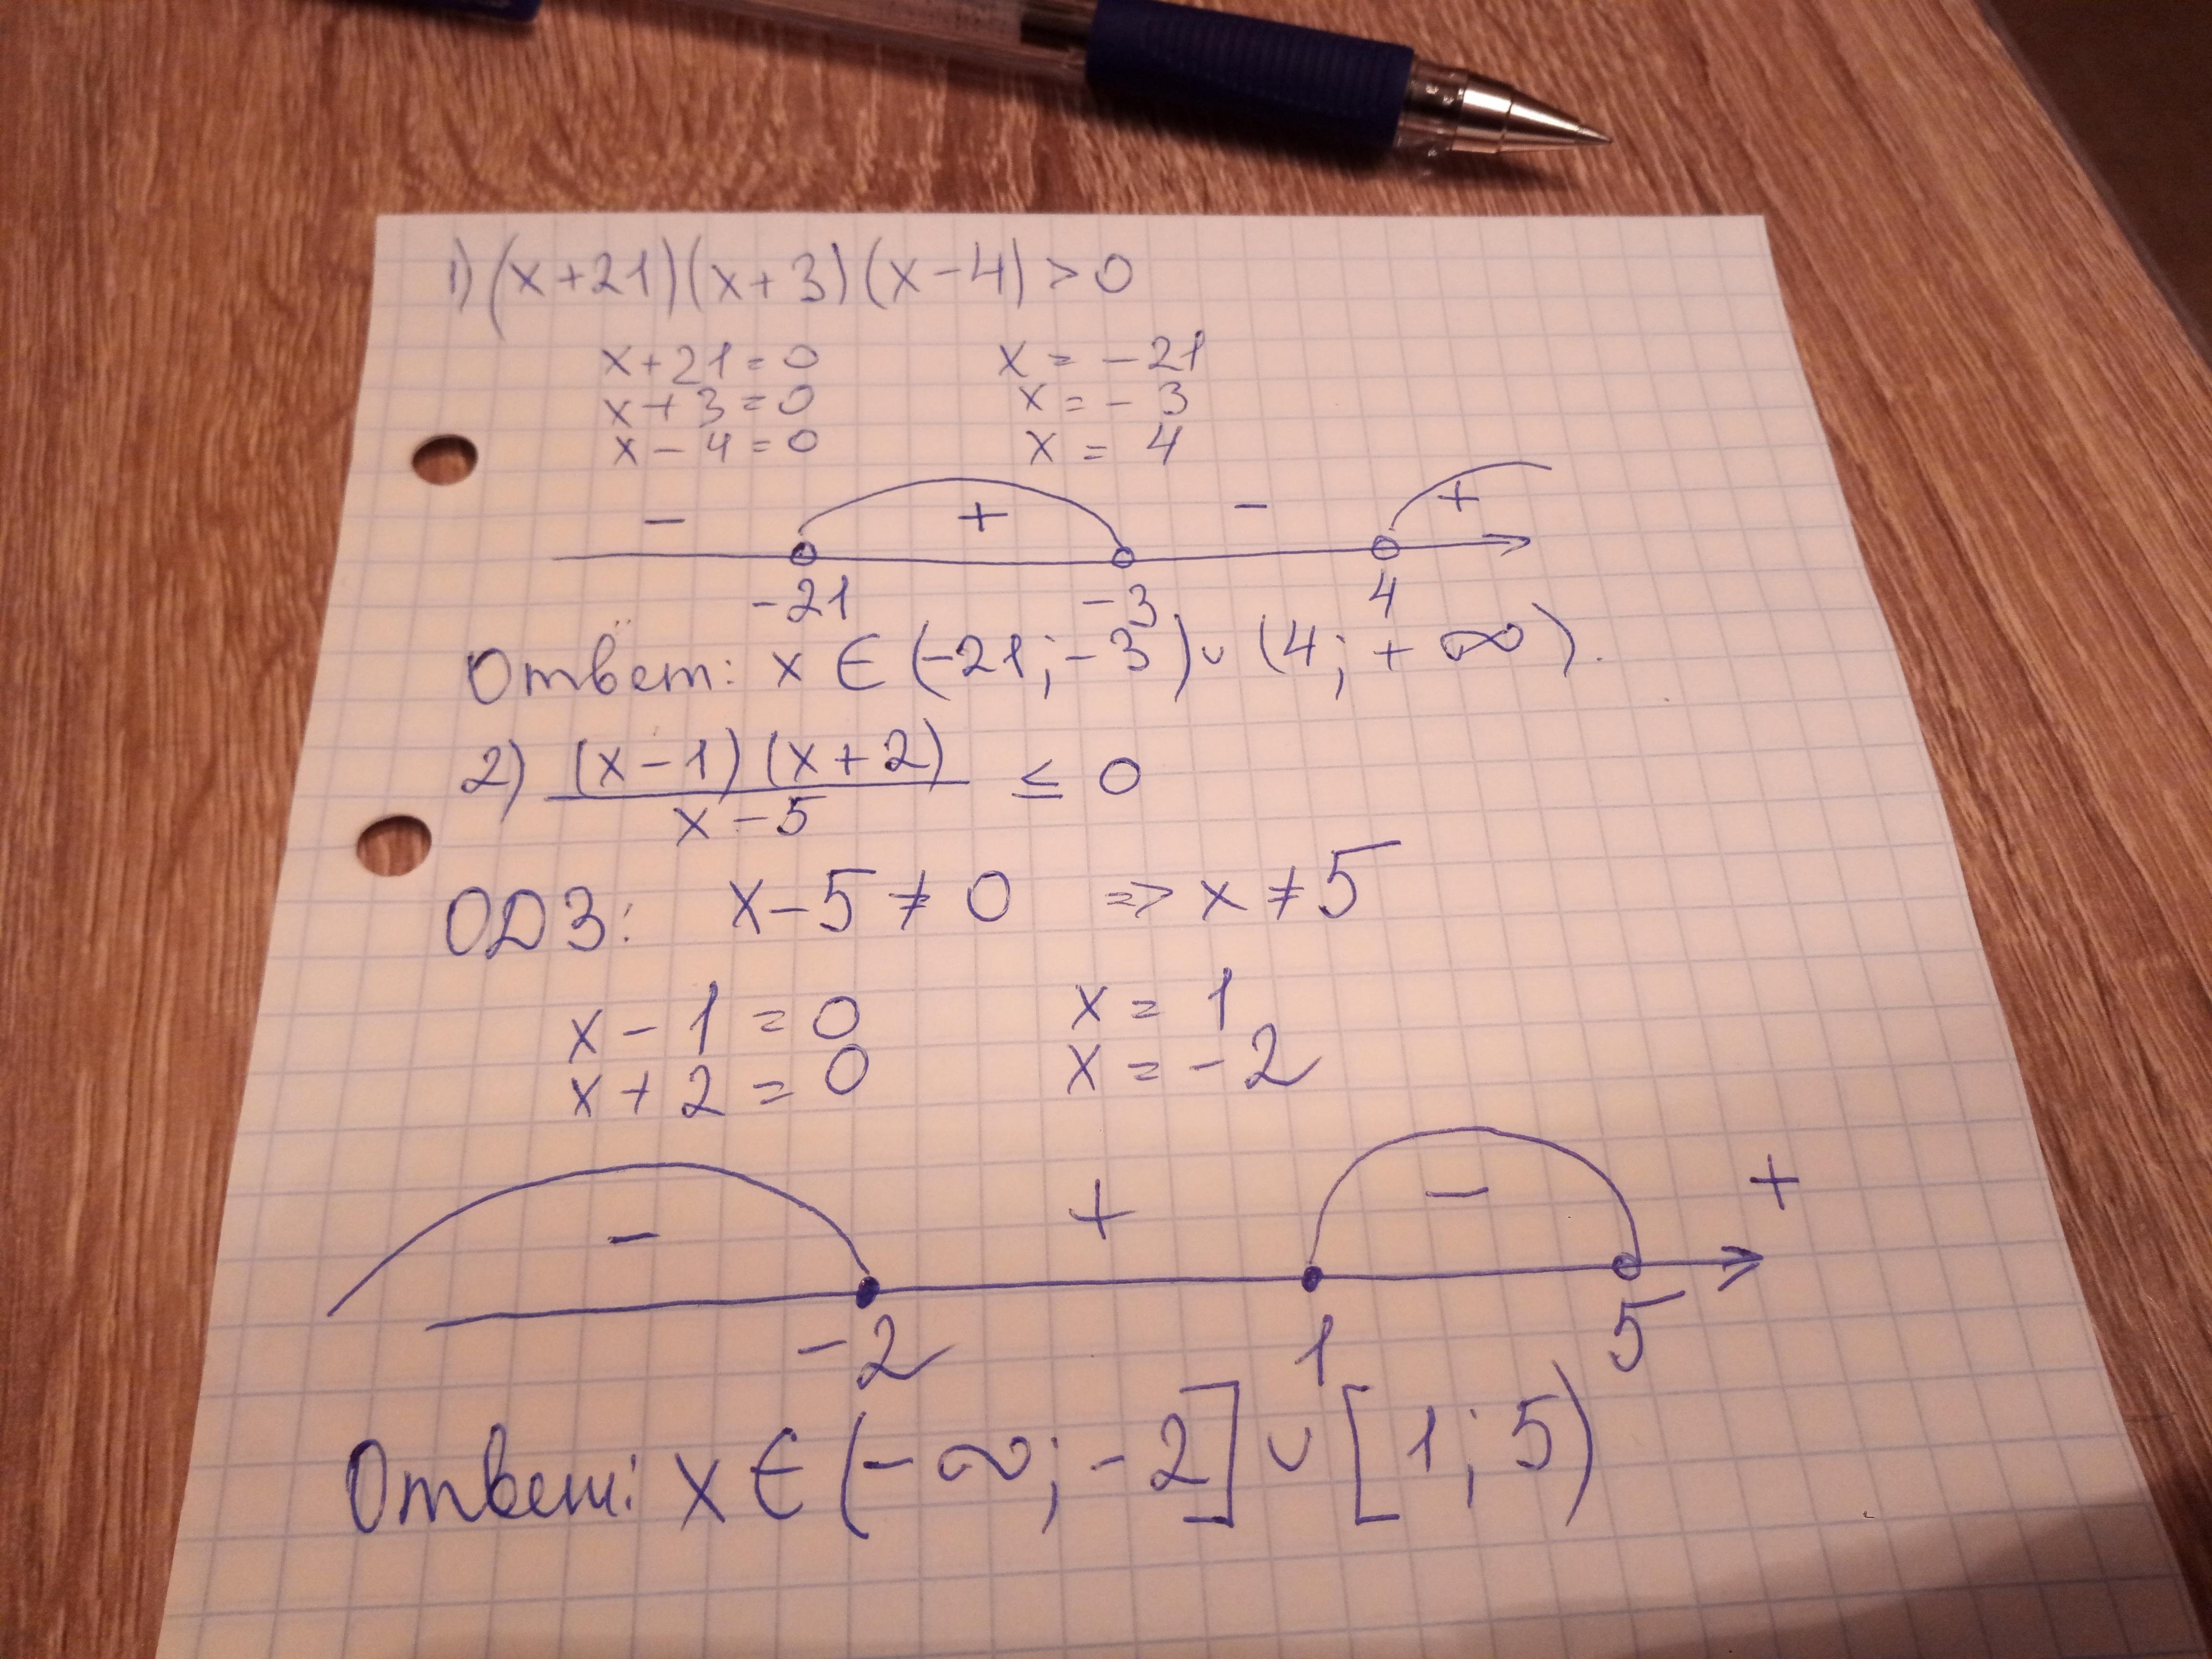 1) (x+21)(x+3)(x-4) > 0
x+21=0 x = -21
x+3=0 x = -3
x-4=0 x = 4
- + - +
-21 -3 4
Ответ: x ∈ (-21; -3) ∪ (4; +∞).
2) (x-1)(x+2) ≤ 0
x-5
ОДЗ: x-5≠0 => x≠5
x-1=0 x = 1
x+2=0 x = -2
- + - +
-2 1 5
Ответ: x ∈ (-∞; -2] ∪ [1; 5)